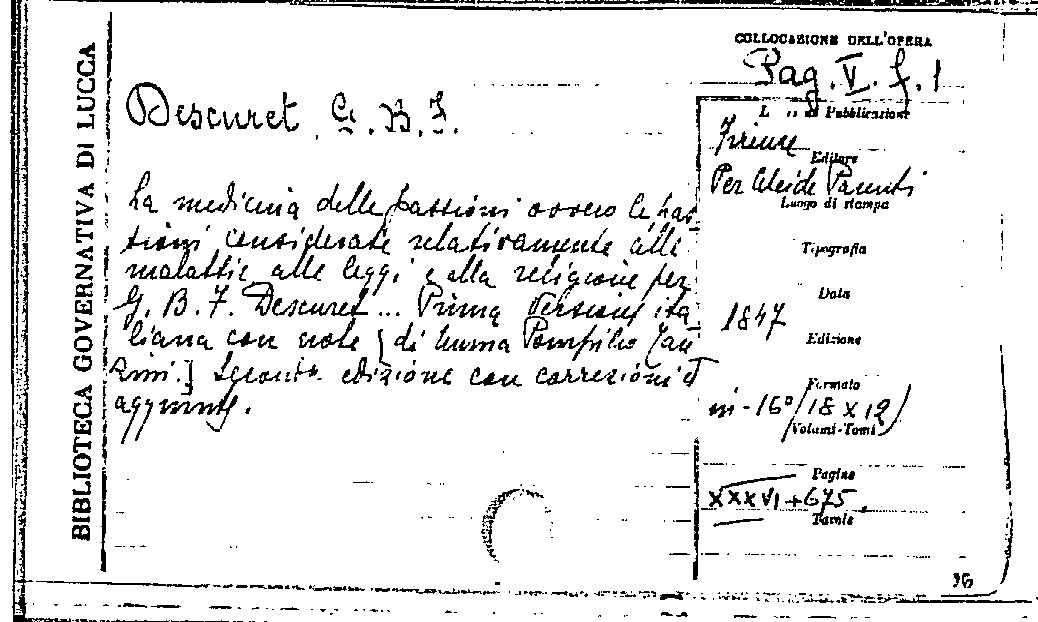 BIBLIOTECA GOVERNATIVA DI LUCCA
COLLOCAZIONE DELL'OPERA
Pag. V. f. 1
Descuret G. B. F.
La medicina delle passioni ovvero le pas-
sioni considerate relativamente alle
malattie alle leggi e alla religione per
G. B. F. Descuret ... Prima versione ita-
liana con note [di Numa Pompilio Tan
zini.] Seconda edizione con correzioni ed
aggiunte.
Pubblicazione
Firenze
Editore
Per Alcide Parenti
Luogo di stampa
Tipografia
Data
1847
Edizione
Formato
in-16° (18 x 12)
Volumi-Tomi
Pagine
XXXVI+675.
Tavole